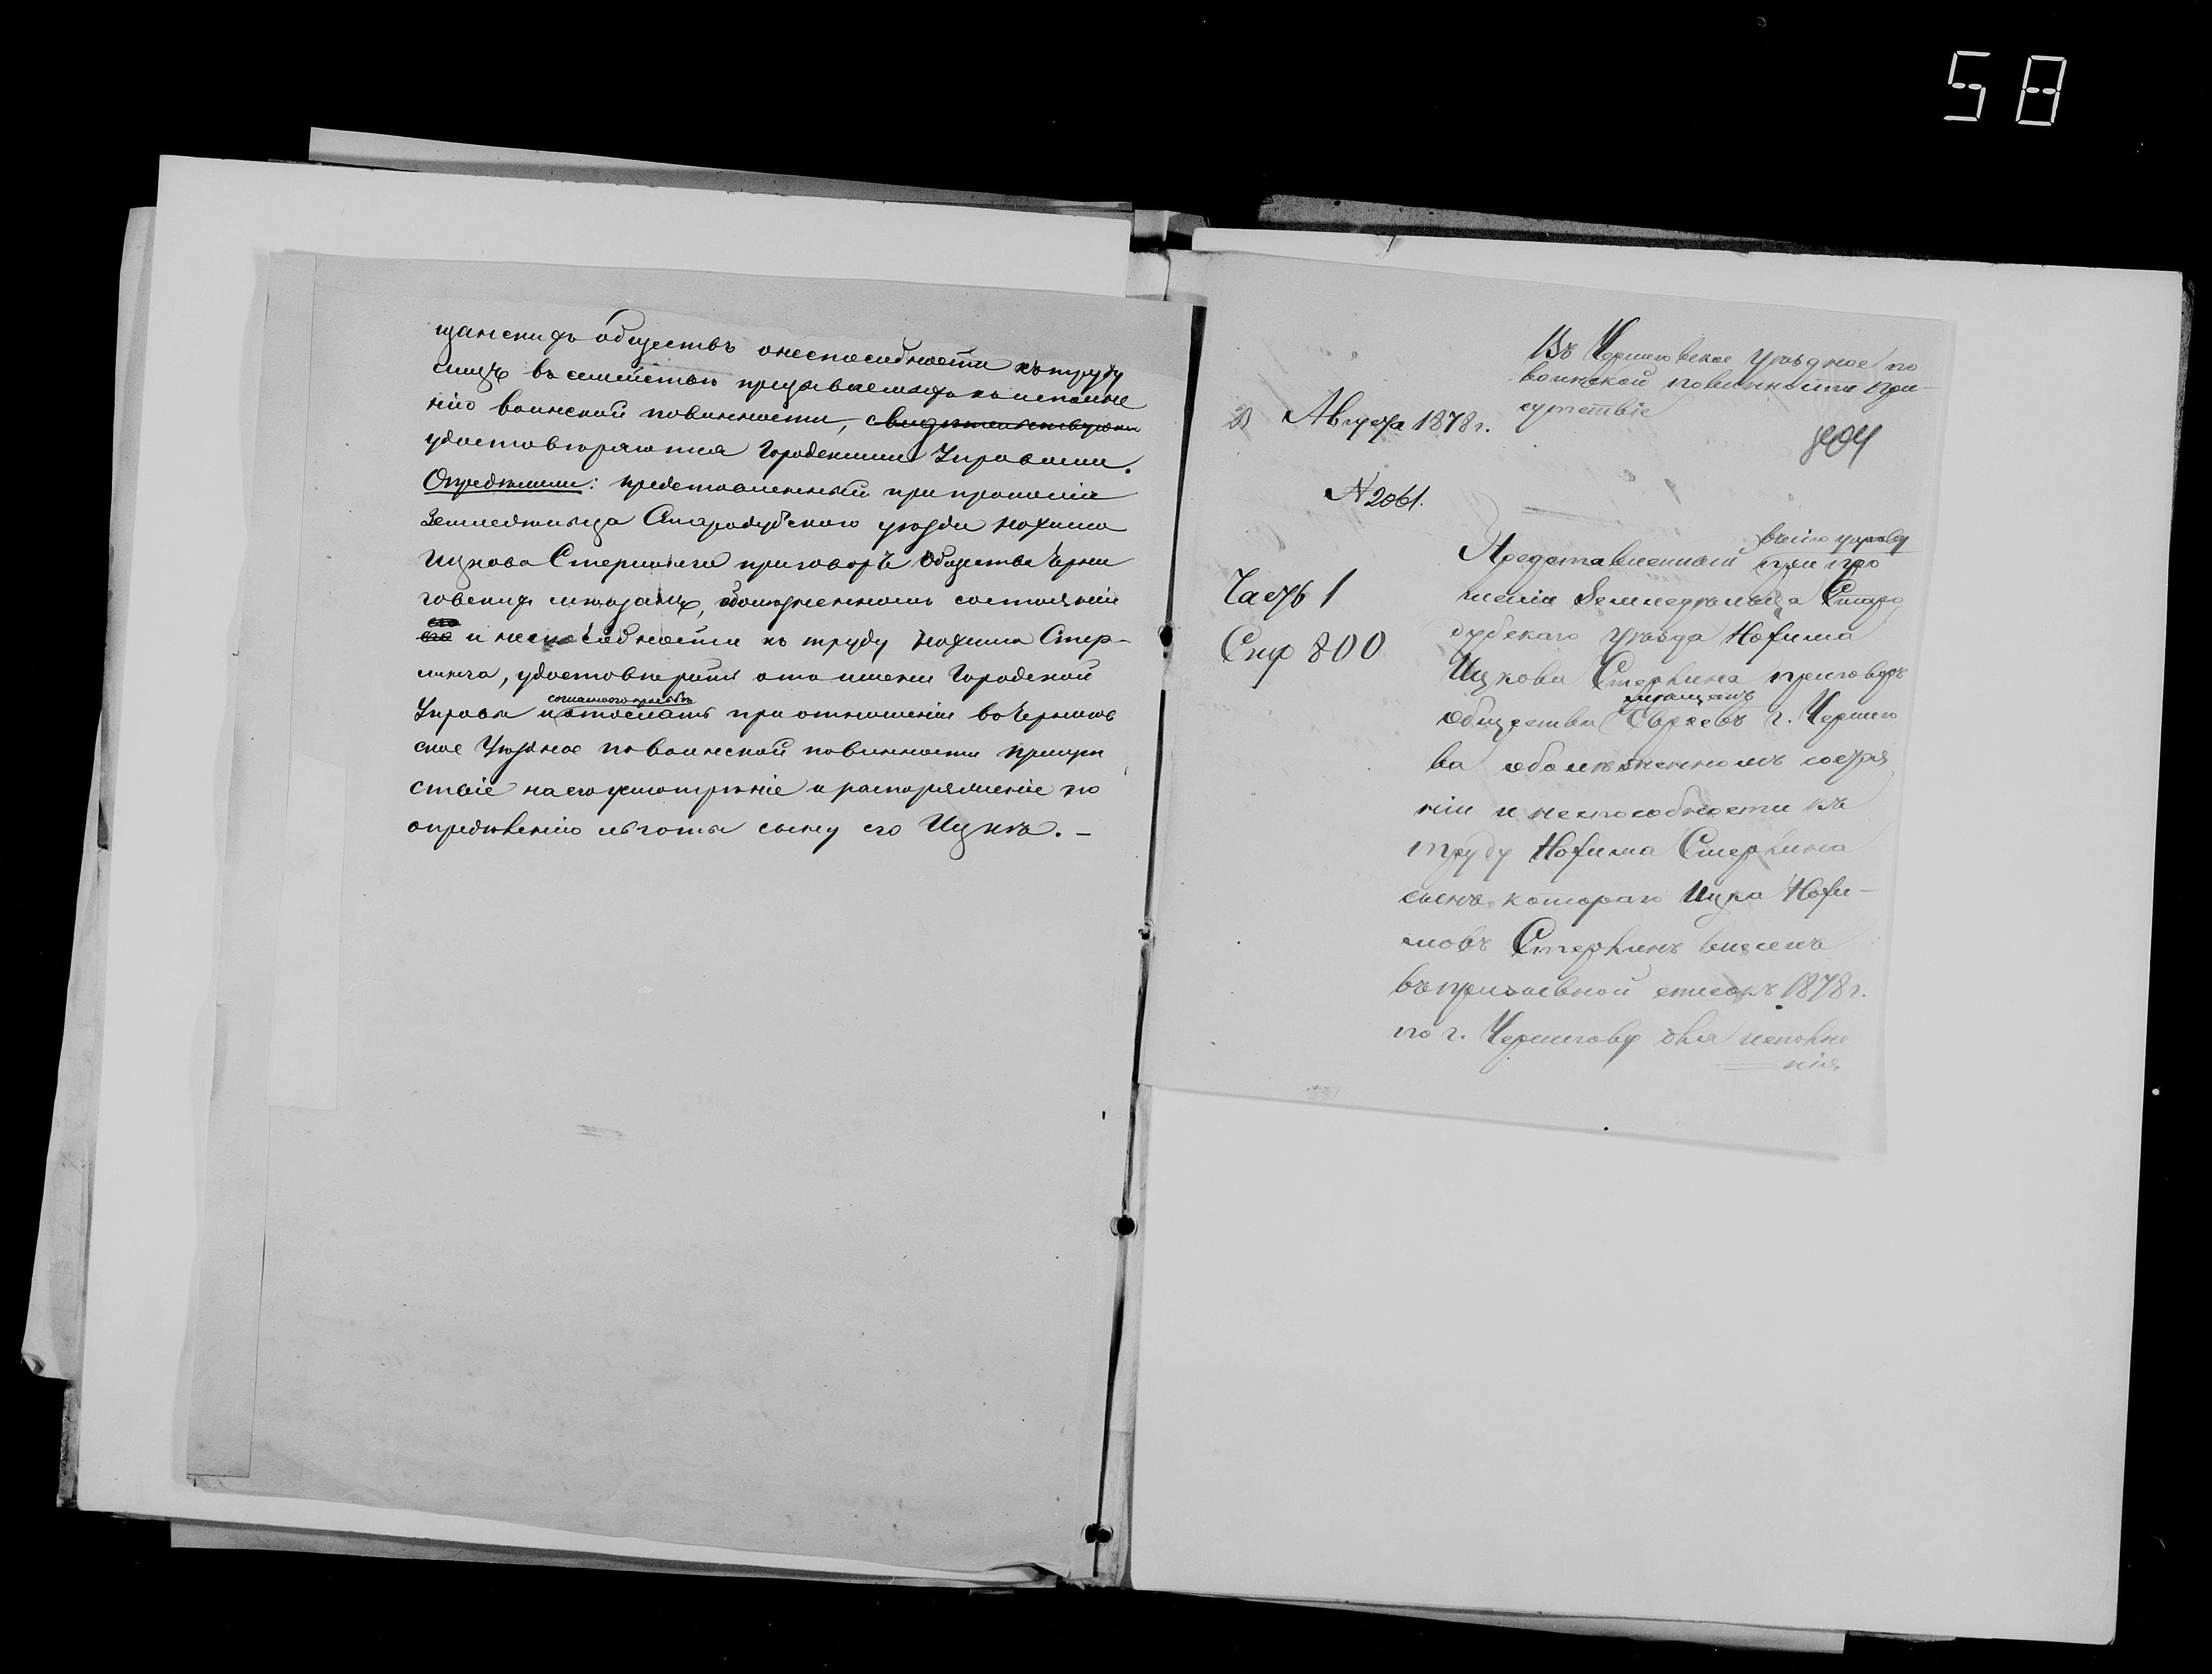 58
щанскихъ обществъ о неспособности къ труду
лицъ въ семействѣ призываемыхъ къ исполне
нію воинской повинности, свидѣтельствуются
удостовѣряются Городскими Управами.
Опредѣлили: представленный при прошеніи
Земледѣльца Стародубскаго уѣзда Нохима
Ицкова Стерлина приговоръ Общества Черни
говскихъ мѣщанъ, о болѣзненномъ состояніи
его и неспособности къ труду Нохима Стер-
лина, удостовѣрить отъ имени Городской
согласно его просьбѣ
Управы и отослать при отношеніи въ Чернигов
ское Уѣздное по воинской повинности присут
ствіе на его усмотрѣніе и распоряженіе по
опредѣленію льготы сыну его Ицкѣ. —
Въ Черниговское уѣздное по
воинской повинности при-
сутствіе
Августа 1878 г.
№ 2061.
Часть 1
Стр 800
въ сію управу
Представленный при про
шеніи Земледѣльца Старо
дубскаго уѣзда Нохима
Ицкова Стерлина приговоръ
мѣщанъ
общества Евреевъ г. Черниго
ва о болѣзненномъ состоя
ніи и неспособности къ
труду Нохима Стерлина
сынъ котораго Ицка Нохи-
мовъ Стерлинъ внесенъ
въ призывной списокъ 1878 г.
по г. Чернигову для исполне
нія